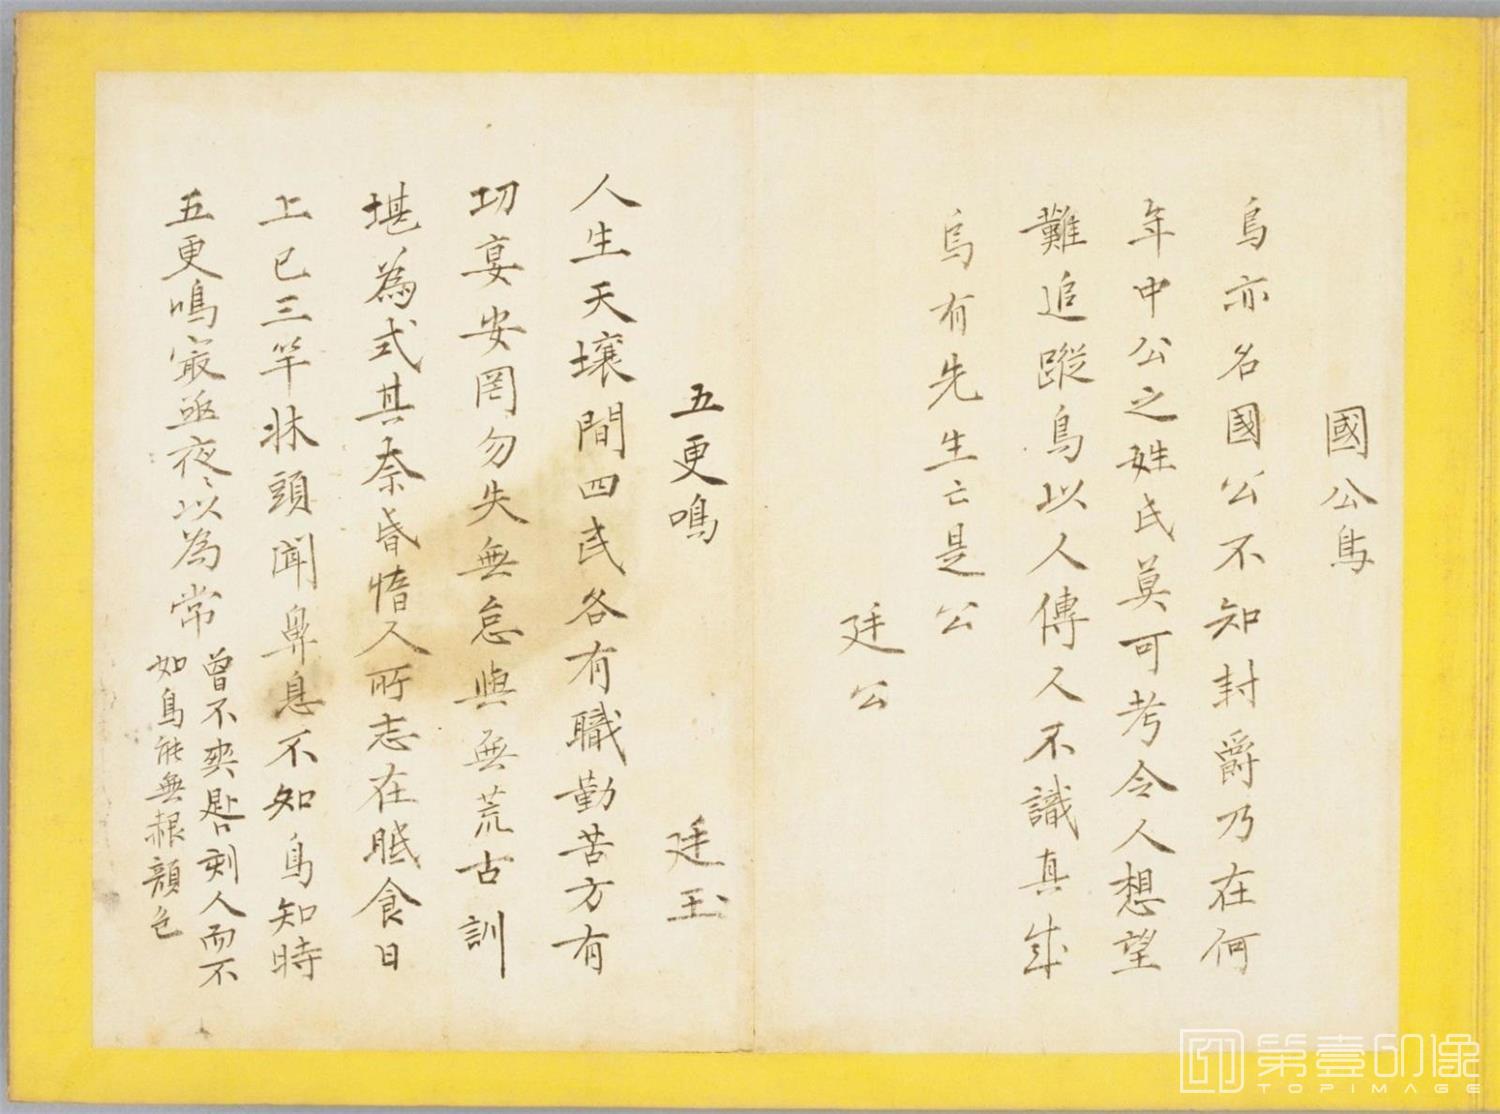 國公鳥
鳥亦名國公不知封爵乃在何
年中公之姓氏莫可考令人想望
難追蹤鳥以人傳人不識真成
烏有先生亡是公
廷公
五更鳴
廷玉
人生天壤間四民各有職勤苦方有
功宴安罔勿失無怠與無荒古訓
堪為式其奈昏惰人所志在眠食日
上已三竿牀頭聞鼻息不知鳥知時
五更鳴最亟夜〻以為常
曾不爽晷刻人而不
如鳥能無赧顏色
第壹印像
TOPIMAGE